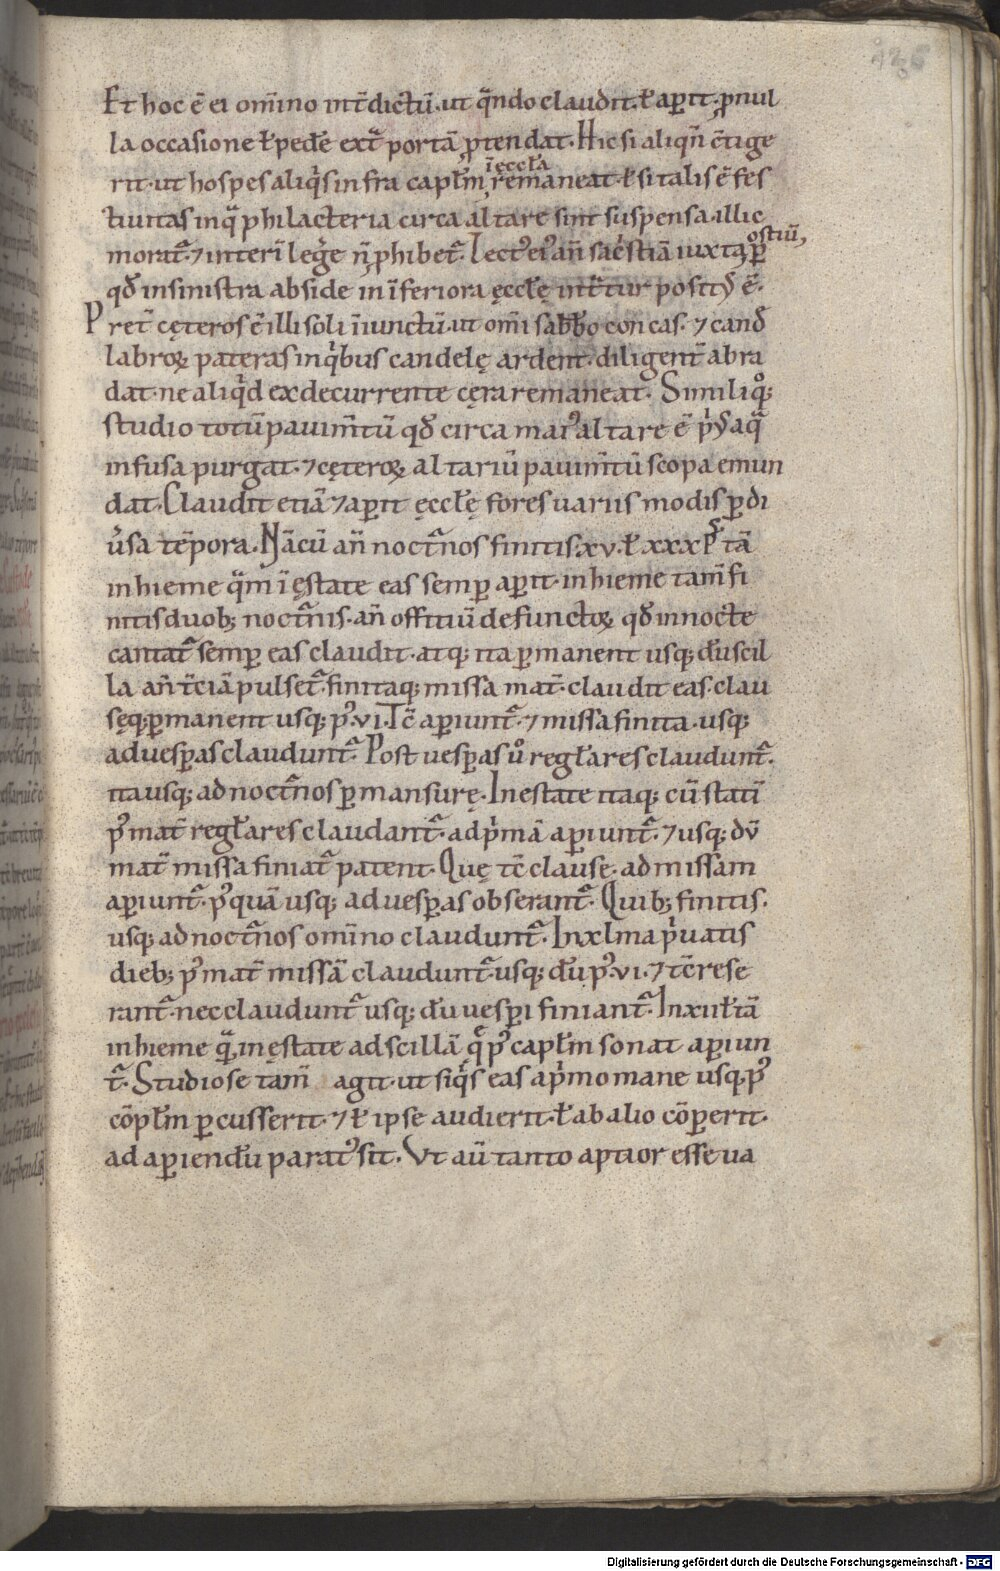 126
Et hoc ē ei om̄ino int̄dictū. ut qᵃndo claudit. ł aꝑit. ꝓ nul
la occasione ł pedē extᵃ portā ꝓtendat. Hic si aliqn̄ c̄tige
rit. ut hospes aliqⁱs infra capłm, remaneat. ł si talis ē fes
ī ęccła
tiuitas in qᵃ philacteria circa altare sint suspensa. illic
morat᷑. ⁊ interī legͥe n̄ ꝓhibet᷑. Lectꝰ eiꝰ an̄ sacͬstiā iuxta
ostiū,
qđ in sinistra abside in īferiora ęccłę int̄tur positū ē.
Pret̄ cęteros ē illi soli īiunctū. ut om̄i sabb̄o concas. ⁊ cand
labroꝝ pateras in qⁱbus candelę ardent. diligent̄ abra
dat. ne aliqⁱd ex decurrente cęra remaneat. Similiqꝫ
studio totū pauim̄tū qđ circa maiꝰ altare ē aqᵃ
infusa purgat. ⁊ cęteroꝝ altariū pauim̄tū scopa emun
dat. Claudit etiā ⁊ aꝑit ęccłę fores uariis modis ꝑ di
ūsa tēpora. Nā cū an̄ noct᷑nos finitis .xv. ł xxx. tā
in hieme qᵃm ī ęstate eas semꝑ aꝑit. in hieme tam̄ fi
nitis duobꝫ noct᷑nis. an̄ offitiū defunctoꝝ qđ in nocte
cantat᷑ semꝑ eas claudit. atqꝫ ita ꝑmanent usqꝫ dū scil
la an̄ t̄ciā pulset᷑. finitaqꝫ missa mat̄. claudit eas. clau
sęqꝫ ꝑmanent usqꝫ pꝰ .vi. Tc̄ aꝑiunt᷑. ⁊ missa finita. usqꝫ
ad uesꝑas claudunt᷑. Post uesꝑas uͦ regłares claudunt᷑.
ita usqꝫ ad noct᷑nos ꝑmansurę. In estate itaqꝫ cū statī
pꝰ mat̄ regłares claudant᷑. ad pⁱmā aꝑiunt᷑. ⁊ usqꝫ dū
mat̄ missa finiat᷑ patent. Quę tc̄ clausę. ad missam
aꝑiunt᷑. pꝰquā usqꝫ ad uesꝑas obserant᷑. Quibꝫ finitis.
usqꝫ ad noct᷑nos om̄ino claudunt᷑. In xl.ma pⁱuatis
diebꝫ pꝰ mat̄ missā claudunt᷑ usqꝫ dū pꝰ .vi. ⁊ tc̄ rese
rant᷑. nec claudunt᷑ usqꝫ dū uesꝑi finiant᷑. Inxułtā
in hieme qᵃ, in ęstate ad scillā qͤ pꝰ capłm sonat aꝑiun
t᷑. Studiose tam̄ agit. ut siqⁱs eas a pⁱmo mane usqꝫ pꝰ
cōpłm ꝑcusserit. ⁊ ł ipse audierit. ł ab alio cōꝑerit.
ad aꝑiendū paratꝰ sit. Vt aū tanto aptior esse ua
Digitalisierung gefördert durch die Deutsche Forschungsgemeinschaft - DFG